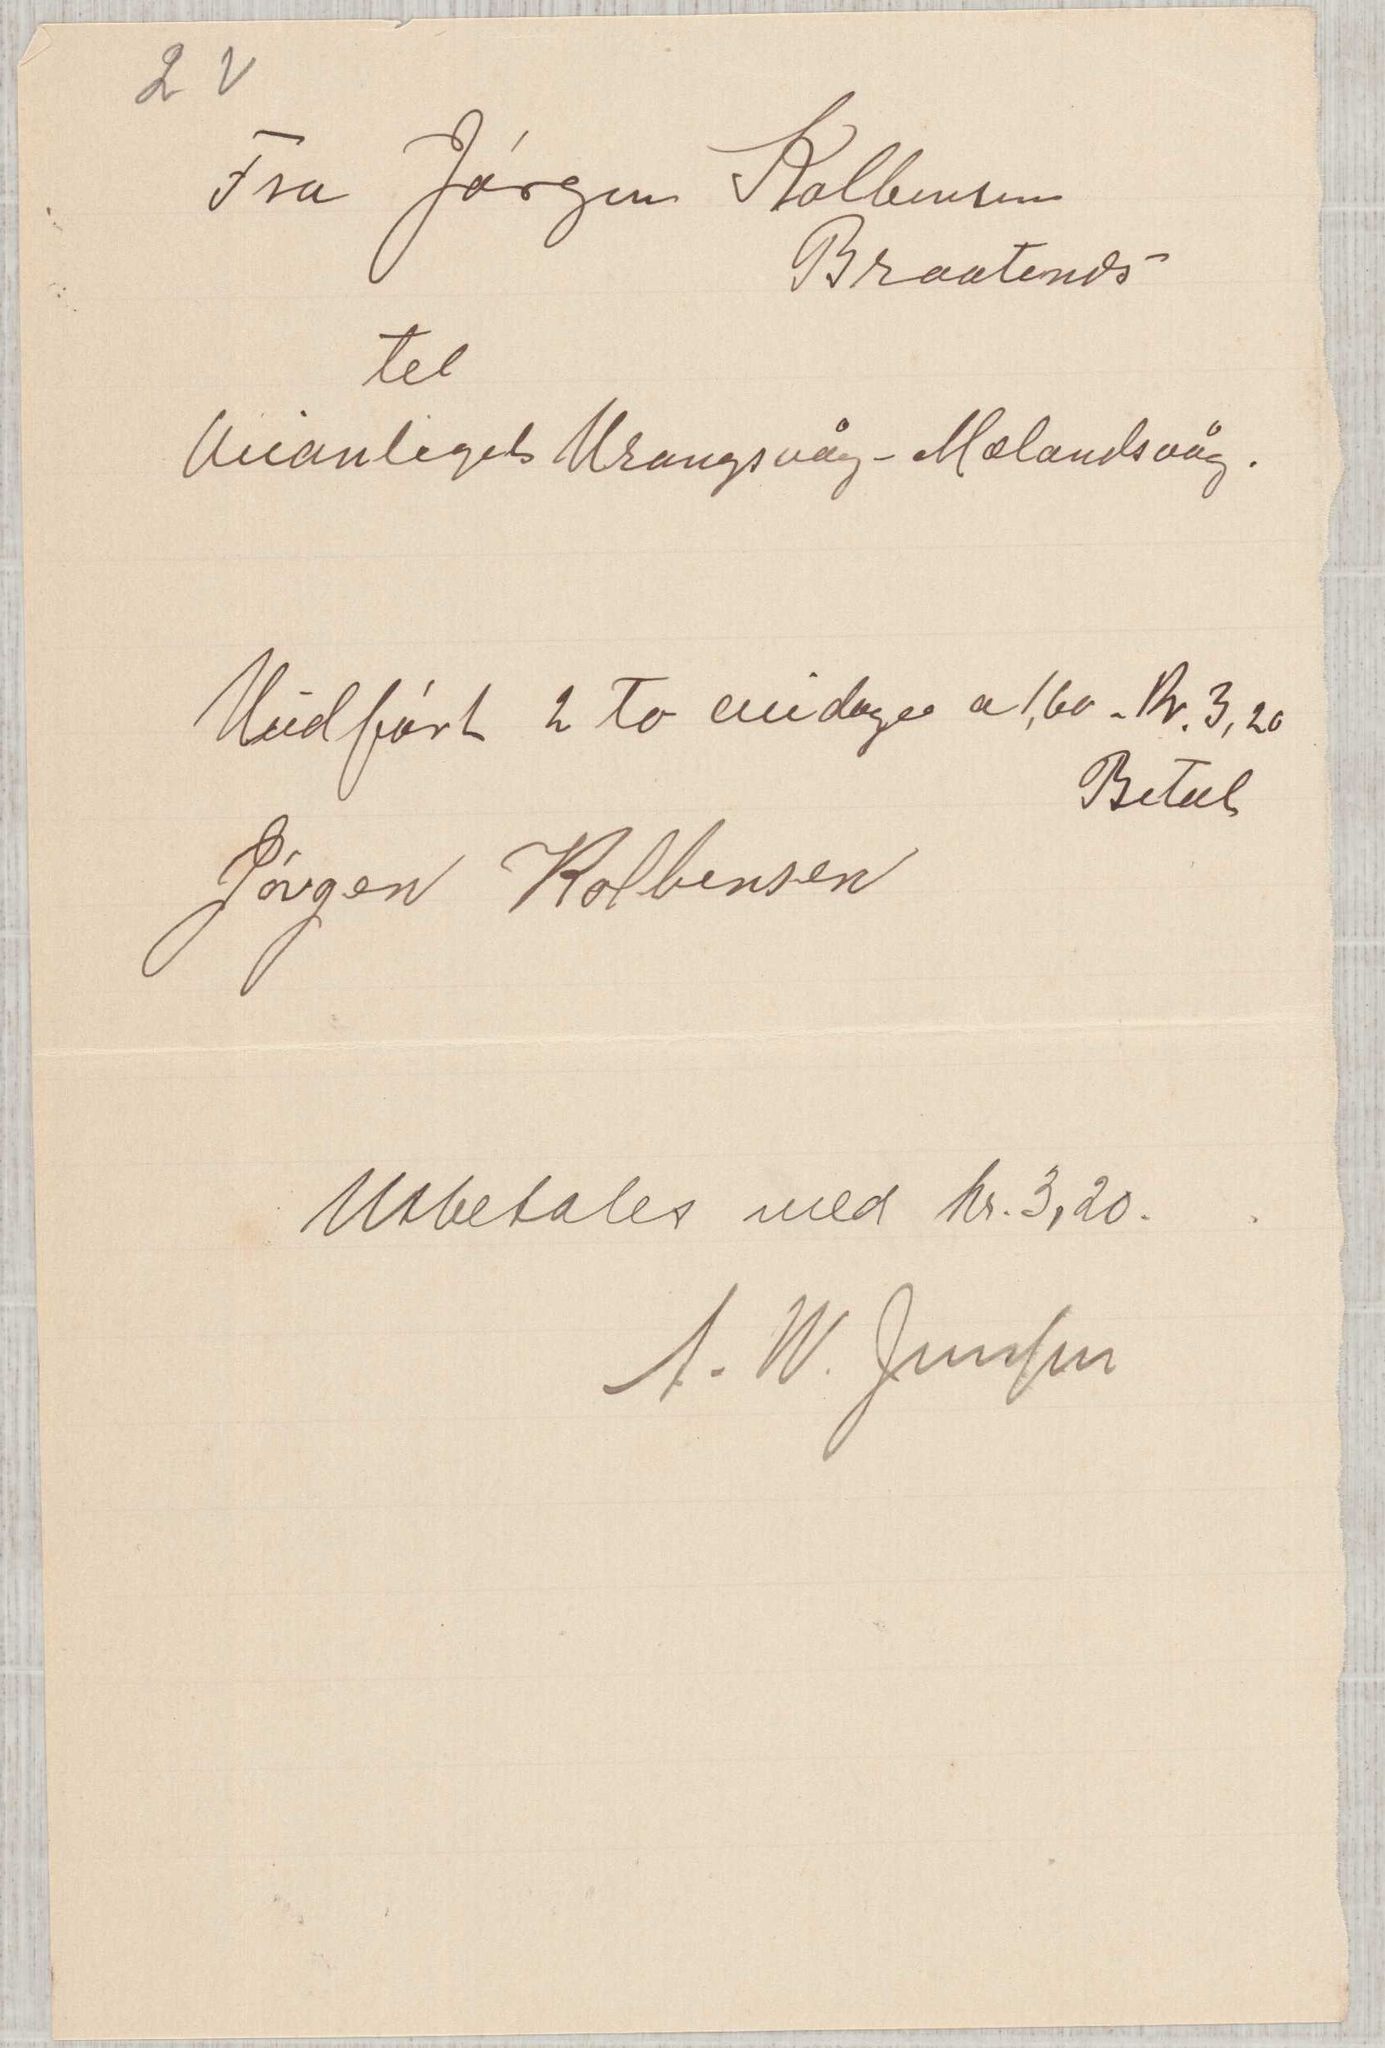 2 V
Fra Jørgen Kolbensen
Braatenes
tel
Veianleget Urangsvåg - Mælandsvåg.
Uudført 2 to veidage a 1,60 - Kr. 3,20
Betal
Jørgen Kolbensen
Utbetales med kr. 3,20.
A. W. Jensen